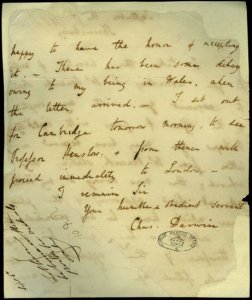 happy to have the honor of accepting
it. — There has been some delay
owing to my being in Wales, when
the letter arrived. — I set out
for Cambridge tomorrow morning, to see
Professor Henslow, & from thence will
proceed immediately to London. —
I remain Sir
Your humble & obedient servant
Chas. Darwin